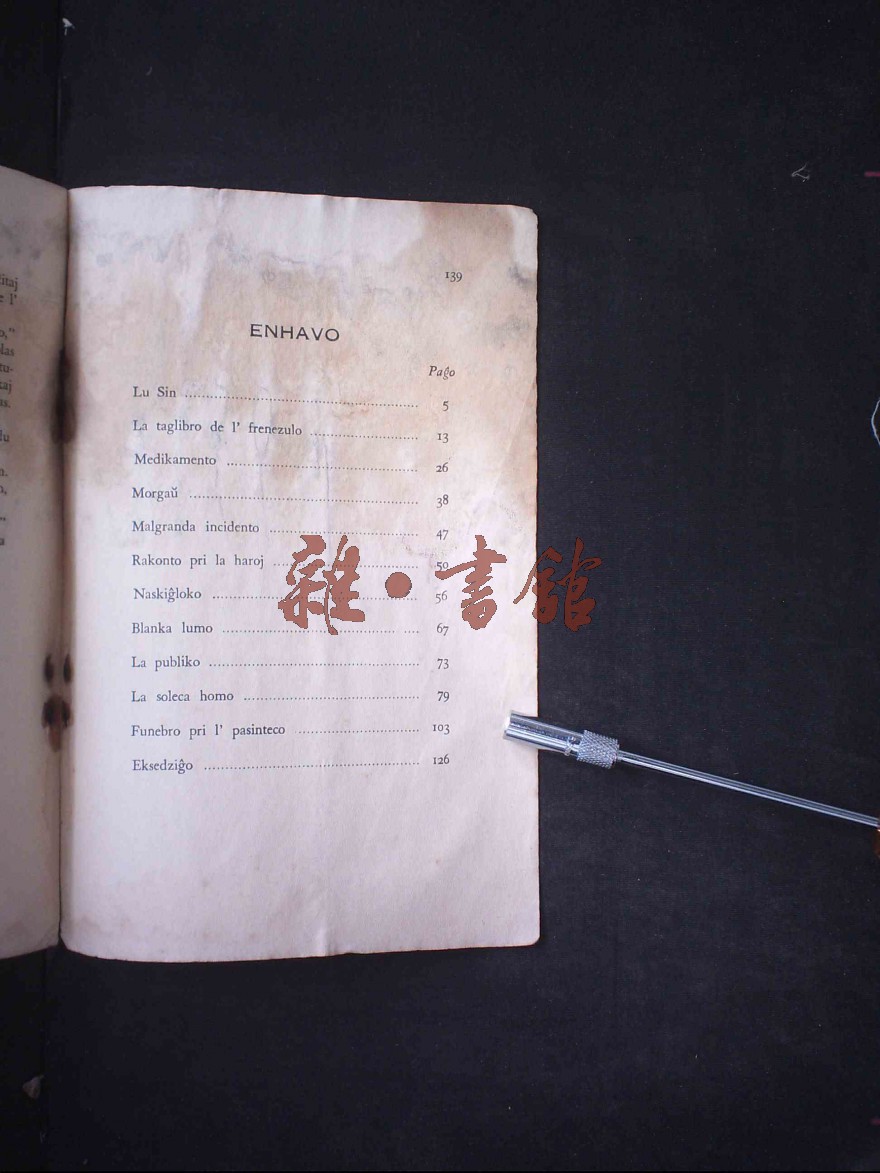 139
ENHAVO
Paĝo
Lu Sin ........ 5
La taglibro de l' frenezulo ........ 13
Medikamento ........ 26
Morgaŭ ........ 38
Malgranda incidento ........ 47
Rakonto pri la haroj ........ 50
Naskiĝloko ........ 56
Blanka lumo ........ 67
La publiko ........ 73
La soleca homo ........ 79
Funebro pri l' pasinteco ........ 103
Eksedziĝo ........ 126
雜·書館